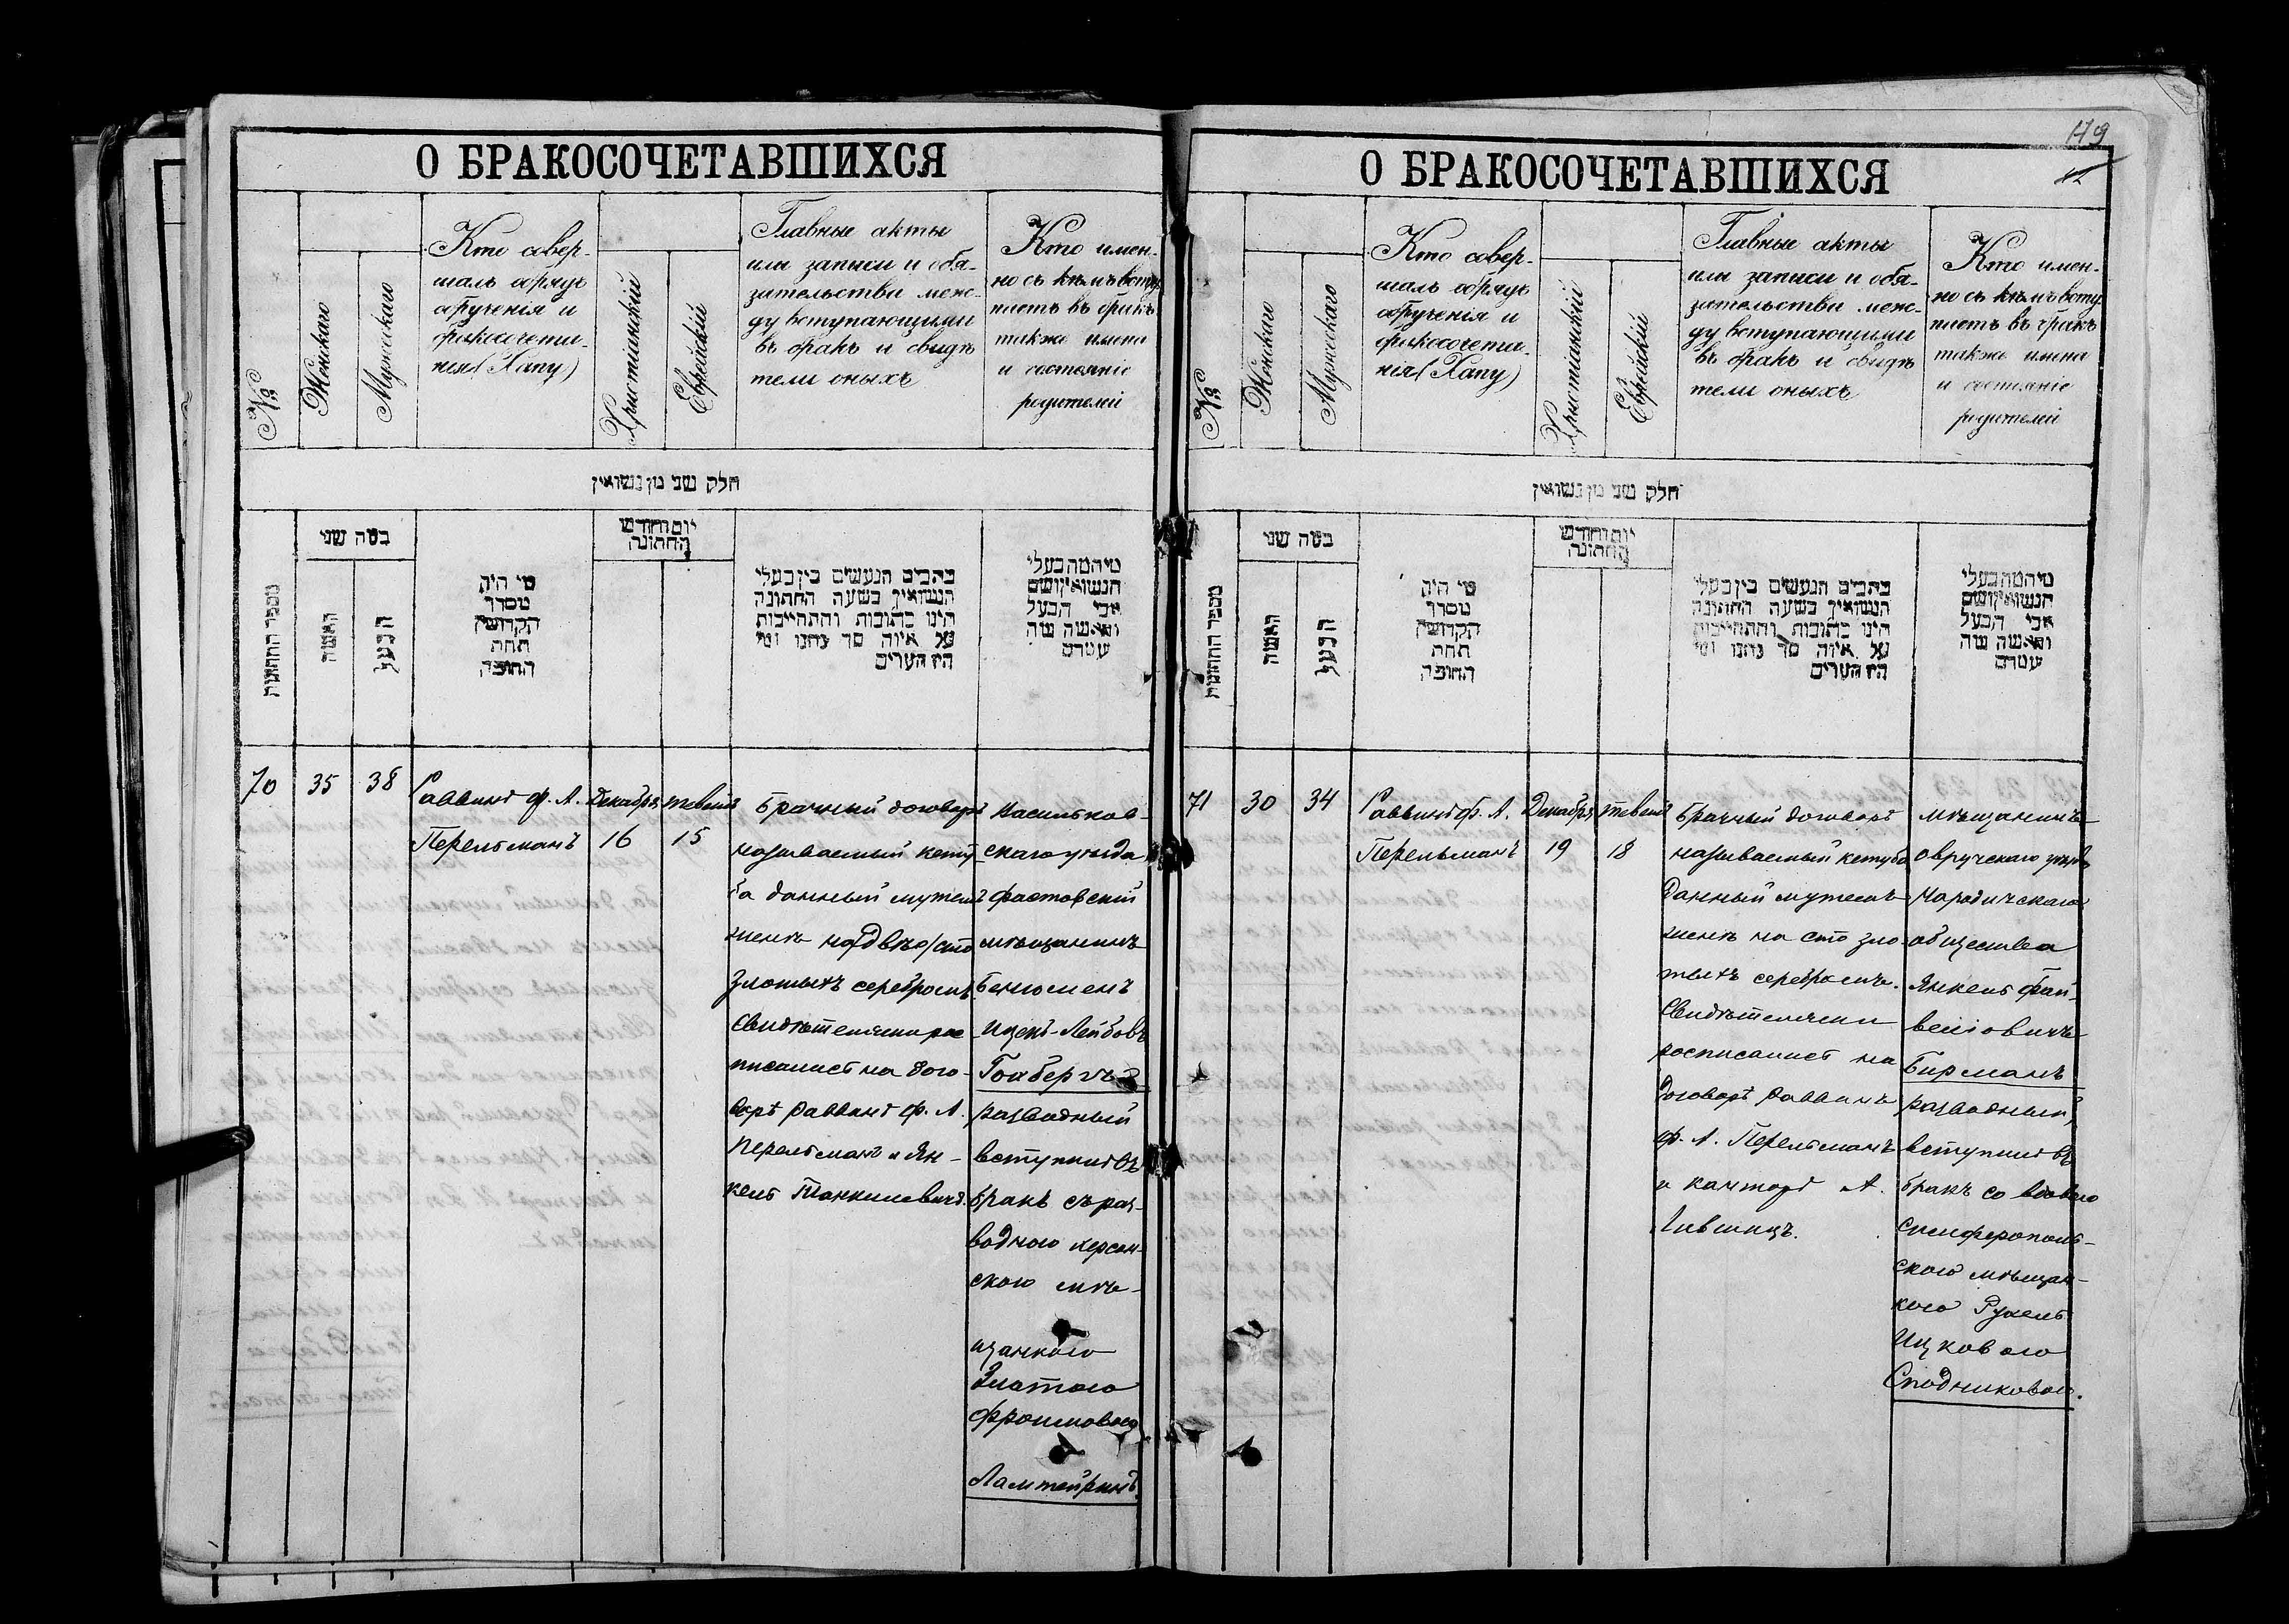 О БРАКОСОЧЕТАВШИХСЯ
№
Женскаго
Мужескаго
Кто совер-
шалъ обрядъ
обрученія и
бракосочета-
нія (Хапу)
Христіанскій
Еврейскій
Главные акты
или записи и обя-
зательства меж-
ду вступающими
въ бракъ и свидѣ
тели оныхъ
Кто имен-
но съ кѣмъ всту
паетъ въ бракъ
также имена
и состояніе
родителей
חלק שני מן נשואין
מספר החתונות
במה שני
האשה
הבעל
מי היה
מסדר
הקדושין
תחת
החופה
יום וחודש
החתונה
כתבים הנעשים בין בעלי
הנשואין בשעה החתונה
היינו כתובות והתחייבות
על איזה סך נתנו ומי
היו העדים
מיהמה בעלי
הנשואין ושם
אבי הבעל
והאשה ומה
עמדם
70
35
38
Раввинъ Ф. А.
Перельманъ
Декабря
16
тевейъ
15
Брачный договоръ
называемый кету
ба данный мужемъ
женѣ на двѣсти
злотыхъ серебромъ.
Свидѣтелями рос
писались на дого-
ворѣ раввинъ Ф. А.
Перельманъ и Ян-
кель Танкилевичъ.
Васильков-
скаго уѣзда
фастовскій
мѣщанинъ
Беньюменъ
Ицекъ-Лейбовъ
Голбергъ
разводный
вступилъ въ
бракъ съ раз-
водною херсон-
скою мѣ-
щанкою
Златою
Фроимовою
Ламтейринъ.
О БРАКОСОЧЕТАВШИХСЯ
№
Женскаго
Мужескаго
Кто совер-
шалъ обрядъ
обрученія и
бракосочета-
нія (Хапу)
Христіанскій
Еврейскій
Главные акты
или записи и обя-
зательства меж-
ду вступающими
въ бракъ и свидѣ
тели оныхъ
Кто имен-
но съ кѣмъ всту
паетъ въ бракъ
также имена
и состояніе
родителей
חלק שני מן נשואין
מספר החתונות
במה שני
האשה
הבעל
מי היה
מסדר
הקדושין
תחת
החופה
יום וחודש
החתונה
כתבים הנעשים בין בעלי
הנשואין בשעה החתונה
היינו כתובות והתחייבות
על איזה סך נתנו ומי
היו העדים
מיהמה בעלי
הנשואין ושם
אבי הבעל
והאשה ומה
עמדם
71
30
34
Раввинъ Ф. А.
Перельманъ
Декабря
19
тевейъ
18
Брачный договоръ
называемый кетуба
данный мужемъ
женѣ на сто зло-
тыхъ серебромъ.
Свидѣтелями
росписались на
договорѣ раввинъ
Ф. А. Перельманъ
и канторъ А.
Лившицъ.
мѣщанинъ
овручскаго уѣзда
Народичскаго
общества
Янкель Фай-
велювичъ
Бирманъ
разводный,
вступилъ въ
бракъ со вдовою
симферополь-
скою мѣщан-
кою Рухель
Ицковою
Сподниковою.